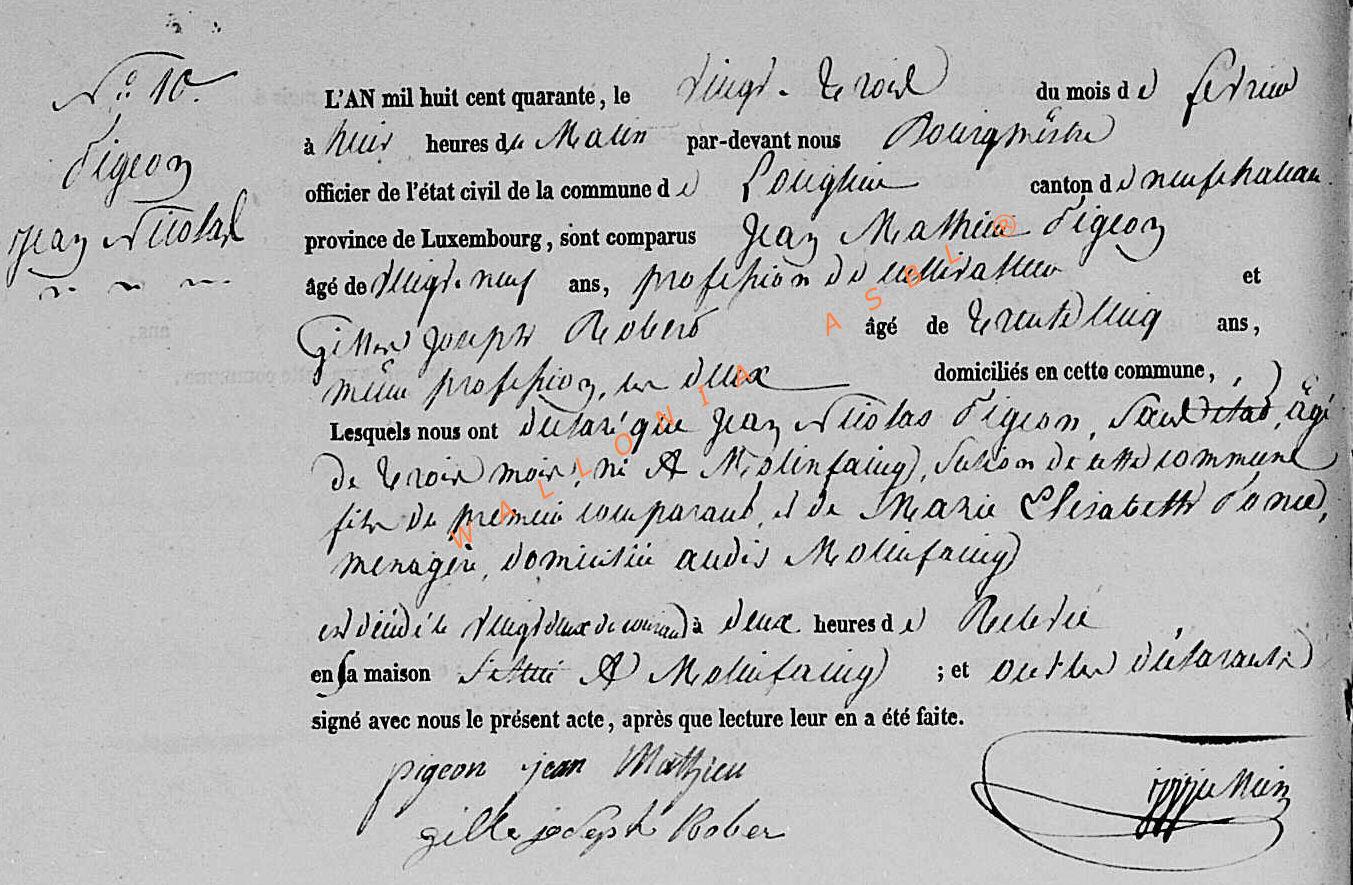 N° 10.
Pigeon
Jean Nicolas
L'AN mil huit cent quarante, le vingt-trois du mois de fevrier
à huit heures du Matin par-devant nous Bourgmêstre
officier de l'état civil de la commune de Longlier canton de neufchateau
province de Luxembourg, sont comparus Jean Mathieu Pigeon
âgé de vingt-neuf ans, profession de cultivateur et
Gilles Joseph Robert âgé de trente cinq ans,
même profession, les deux domiciliés en cette commune,
Lesquels nous ont déclaré que Jean Nicolas Pigeon, âgé
de trois mois, né à Molinfaing, section de cette commune
fils du premier comparant, et de Marie Elisabeth Ponce,
menagère, domiciliée audit Molinfaing
est décédé le vingt deux du courant à deux heures de Relevée
en sa maison située à Molinfaing ; et ont les déclarants
signé avec nous le présent acte, après que lecture leur en a été faite.
pigeon jean Mathieu
gille joseph Rober
WALLONIA ASBL ®